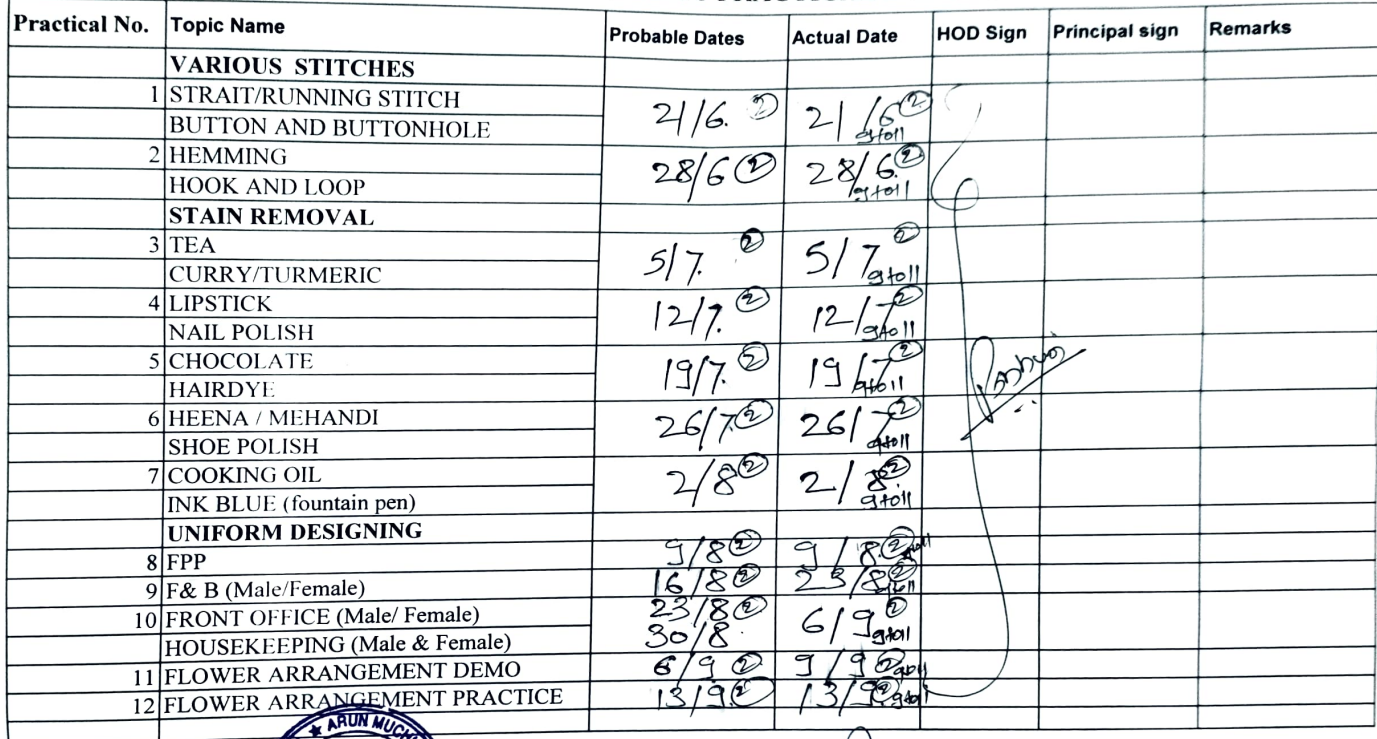 Practical No. Topic Name Probable Dates Actual Date HOD Sign Principal sign Remarks
VARIOUS STITCHES
1 STRAIT/RUNNING STITCH 21/6. 2 21/6 2 9 to 11
BUTTON AND BUTTONHOLE
2 HEMMING 28/6 2 28/6. 2 9 to 11
HOOK AND LOOP
STAIN REMOVAL
3 TEA 5/7. 2 5/7 2 9 to 11
CURRY/TURMERIC
4 LIPSTICK 12/7. 2 12/7 2 9 to 11
NAIL POLISH
5 CHOCOLATE 19/7. 2 19/7 2 9 to 11
HAIRDYE
6 HEENA / MEHANDI 26/7. 2 26/7 2 9 to 11
SHOE POLISH
7 COOKING OIL 2/8 2 2/8 2 9 to 11
INK BLUE (fountain pen)
UNIFORM DESIGNING
8 FPP 9/8 2 9/8. 2 9 to 11
9 F& B (Male/Female) 16/8 2 23/8 2 9 to 11
10 FRONT OFFICE (Male/ Female) 23/8 2 6/9 2 9 to 11
HOUSEKEEPING (Male & Female) 30/8.
11 FLOWER ARRANGEMENT DEMO 6/9 2 9/9 2 9 to 11
12 FLOWER ARRANGEMENT PRACTICE 13/9 2 13/9 2 9 to 11
★ ARUN